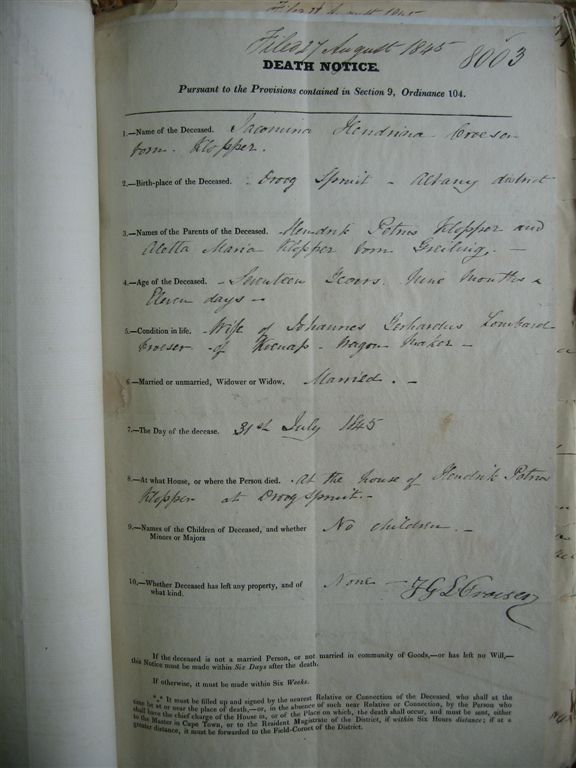 Filed 27 August 1845
8003
DEATH NOTICE.
Pursuant to the Provisions contained in Section 9, Ordinance 104.
1.—Name of the Deceased. Jacomina Hendrina Croeser
born Klopper.
2.—Birth-place of the Deceased. Droog Spruit – Albany district
3.—Names of the Parents of the Deceased. Hendrik Petrus Klopper and
Aletta Maria Klopper born Greiling. –
4.—Age of the Deceased. – Seventeen Years. Nine Months &
Eleven days –
5.—Condition in life. – Wife of Johannes Gerhardus Lombard
Croeser – of – Wagon Maker –
6.—Married or unmarried, Widower or Widow. Married. –
7.—The Day of the decease. 31st July 1845
8.—At what House, or where the Person died. At the house of Hendrik Petrus
Klopper at Droog Spruit. –
9.—Names of the Children of Deceased, and whether No children. –
Minors or Majors
10.—Whether Deceased has left any property, and of None –
what kind.
J G L Croeser
If the deceased is not a married Person, or not married in community of Goods,—or has left no Will,—
this Notice must be made within Six Days after the death.
If otherwise, it must be made within Six Weeks.
*** It must be filled up and signed by the nearest Relative or Connection of the Deceased who shall at the
time be at or near the place of death,—or, in the absence of such near Relative or Connection, by the Person who
shall have the chief charge of the House in, or of the Place on which, the death shall occur, and must be sent, either
to the Master in Cape Town, or to the Resident Magistrate of the District, if within Six Hours distance; if at a
greater distance, it must be forwarded to the Field-Cornet of the District.